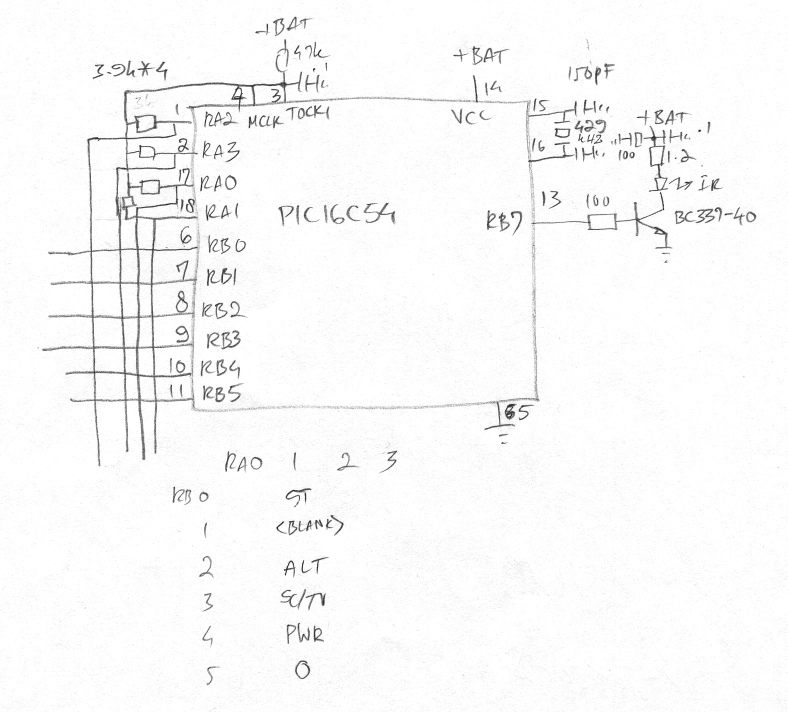 +BAT
47k
3.9k*4
+BAT
150pF
4 3 14
1 RA2 MCLK TOCK1 VCC 15
429
+BAT
2 RA3 16 100 .1
1.2
17 RA0 IR
18 RA1 PIC16C54 RB7 13 100 BC337-40
6 RB0
7 RB1
8 RB2
9 RB3
10 RB4
11 RB5
5
RA0 1 2 3
RB0 ST
1 <BLANK>
2 ALT
3 SC/TV
4 PWR
5 0